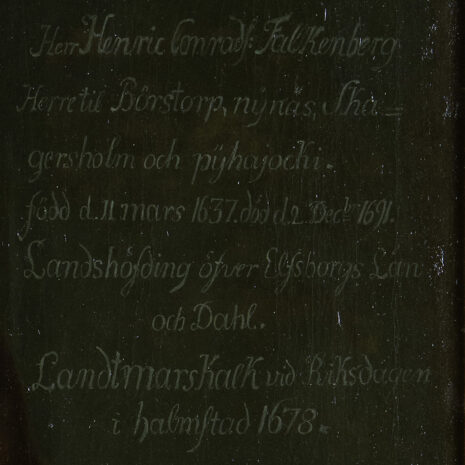 Herr Henric Conradſ: Falkenberg
Herre til Börstorp, nÿnäs, Sha=
gersholm och pÿhajocki.
född d. 11 mars 1637. död d. 2 Decr 1691.
Landshöfding öfver Elfsborgs Län
och Dahl.
Landtmarskalk vid Riksdagen
i halmstad 1678.